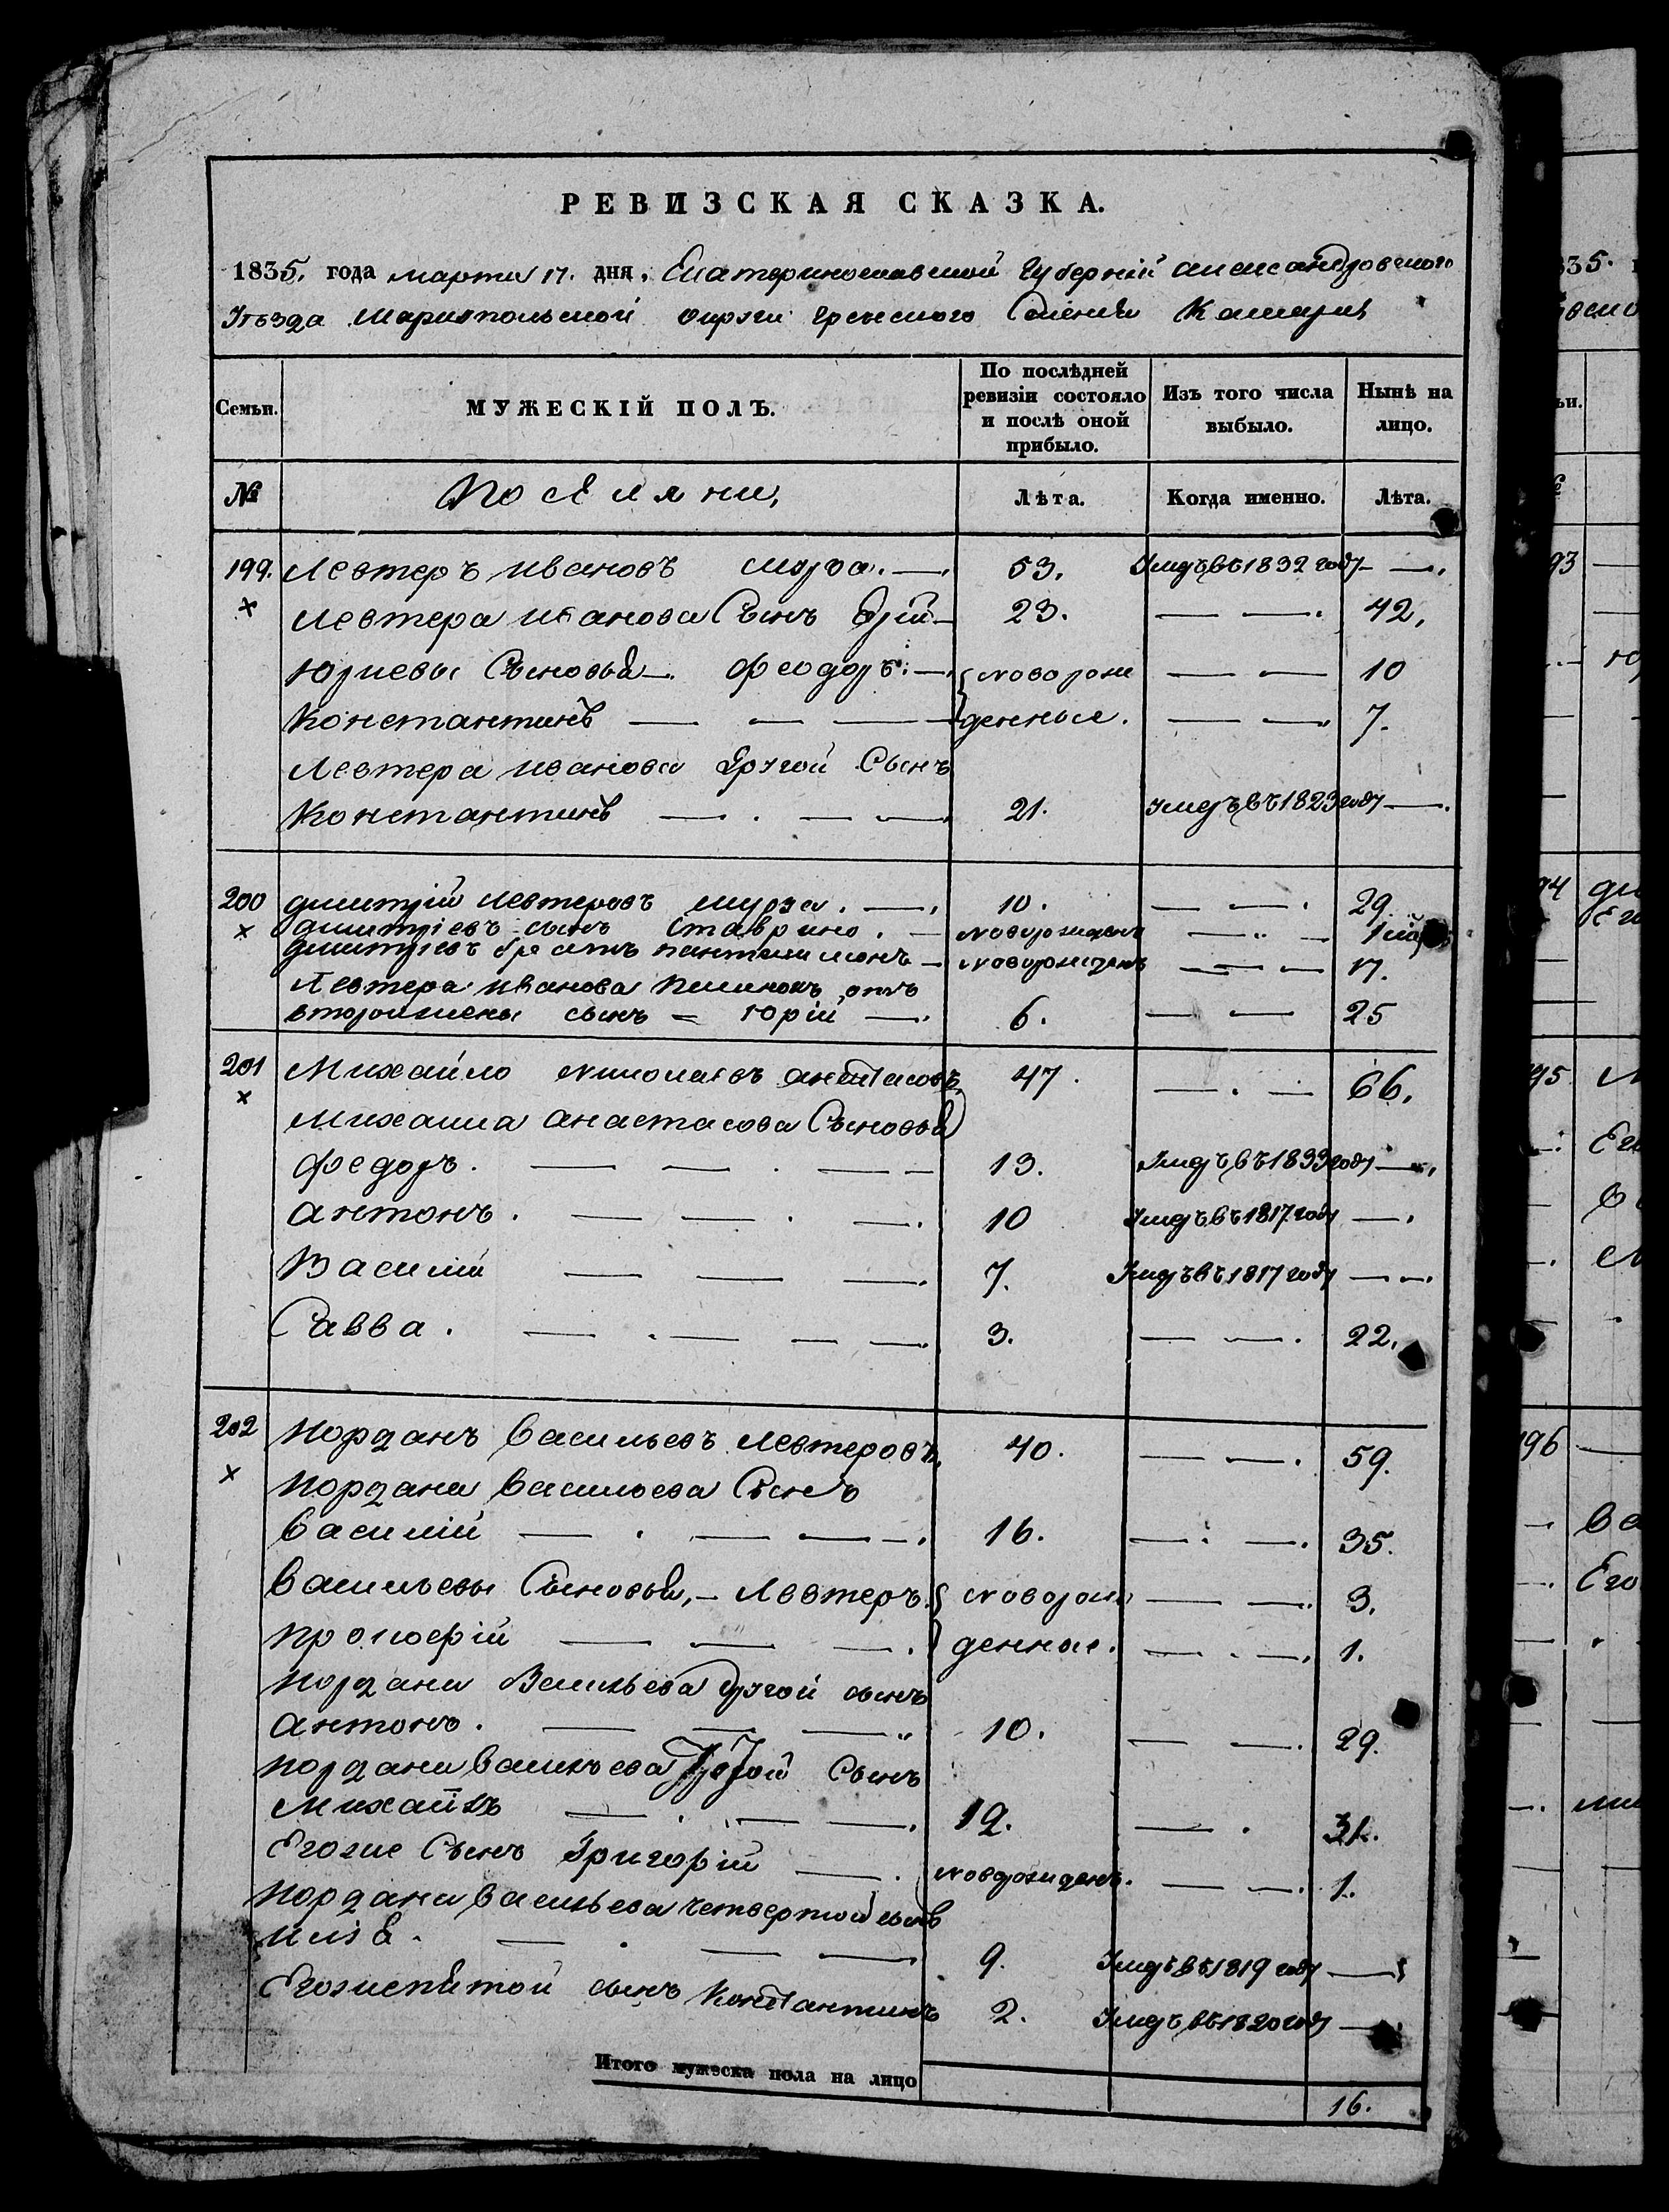 РЕВИЗСКАЯ СКАЗКА.
1835. года марта 17. дня, Екатеринославской Губерніи александровского
Уѣзда Мариупольской округи греческого Селенія
Семьи. МУЖЕСКІЙ ПОЛЪ. По послѣдней ревизіи состояло и послѣ оной прибыло. Изъ того числа выбыло. Нынѣ на лицо.
№ Лѣта. Когда именно. Лѣта.
199. Левтеръ ивановъ — 53. Умеръ въ 1832 году — —.
× левтера иванова Сынъ — 23. — —. 42.
Юриевы Сыновья —. феодоръ. — новорож — — 10
Константинъ — — — денные. — — 7.
Левтера иванова другой Сынъ
Константинъ — . — — 21. Умеръ въ 1823 году —.
200 димитрій левтеровъ мурза. —. 10. — —. 29.
× димитріевъ сынъ Ставрино. — новорожденъ — — 1
димитріевъ братъ пантелимонъ — новорожденъ — — 17.
Левтера иванова отъ
второй жены сынъ — Юрій —. 6. — — 25
201 Михайло николаевъ анастасовъ 47. — . — 66.
× Михаила анастасова Сыновья
федоръ. — — . — — 13. Умеръ въ 1833 году —.
антонъ. — — . —. 10 Умеръ въ 1817 году —.
Василій — — —. 7. Умеръ въ 1817 году — —.
Савва. — . — — —. 3. — —. 22.
202 Иорданъ васильевъ левтеровъ 40. — —. 59.
× Иордана васильева Сынъ
василій — . — — —. 16. — . —. 35.
васильевы Сыновья, — Левтеръ. новорож — —. 3.
прокофій — — —. денные. — . —. 1.
Иордана Васильева другой сынъ
антонъ. — — — 10. — —. 29.
Иордана васильева Сынъ
Михайла — . — —. 12. — . 31.
Егоже Сынъ Григорій —. новорожденъ. — —. 1.
Иордана васильева четвертой сынъ
илія. — . — — 9. Умеръ въ 1819 году —
Егоже пятой сынъ Константинъ 2. Умеръ въ 1820 году —
Итого мужеска пола на лицо 16.